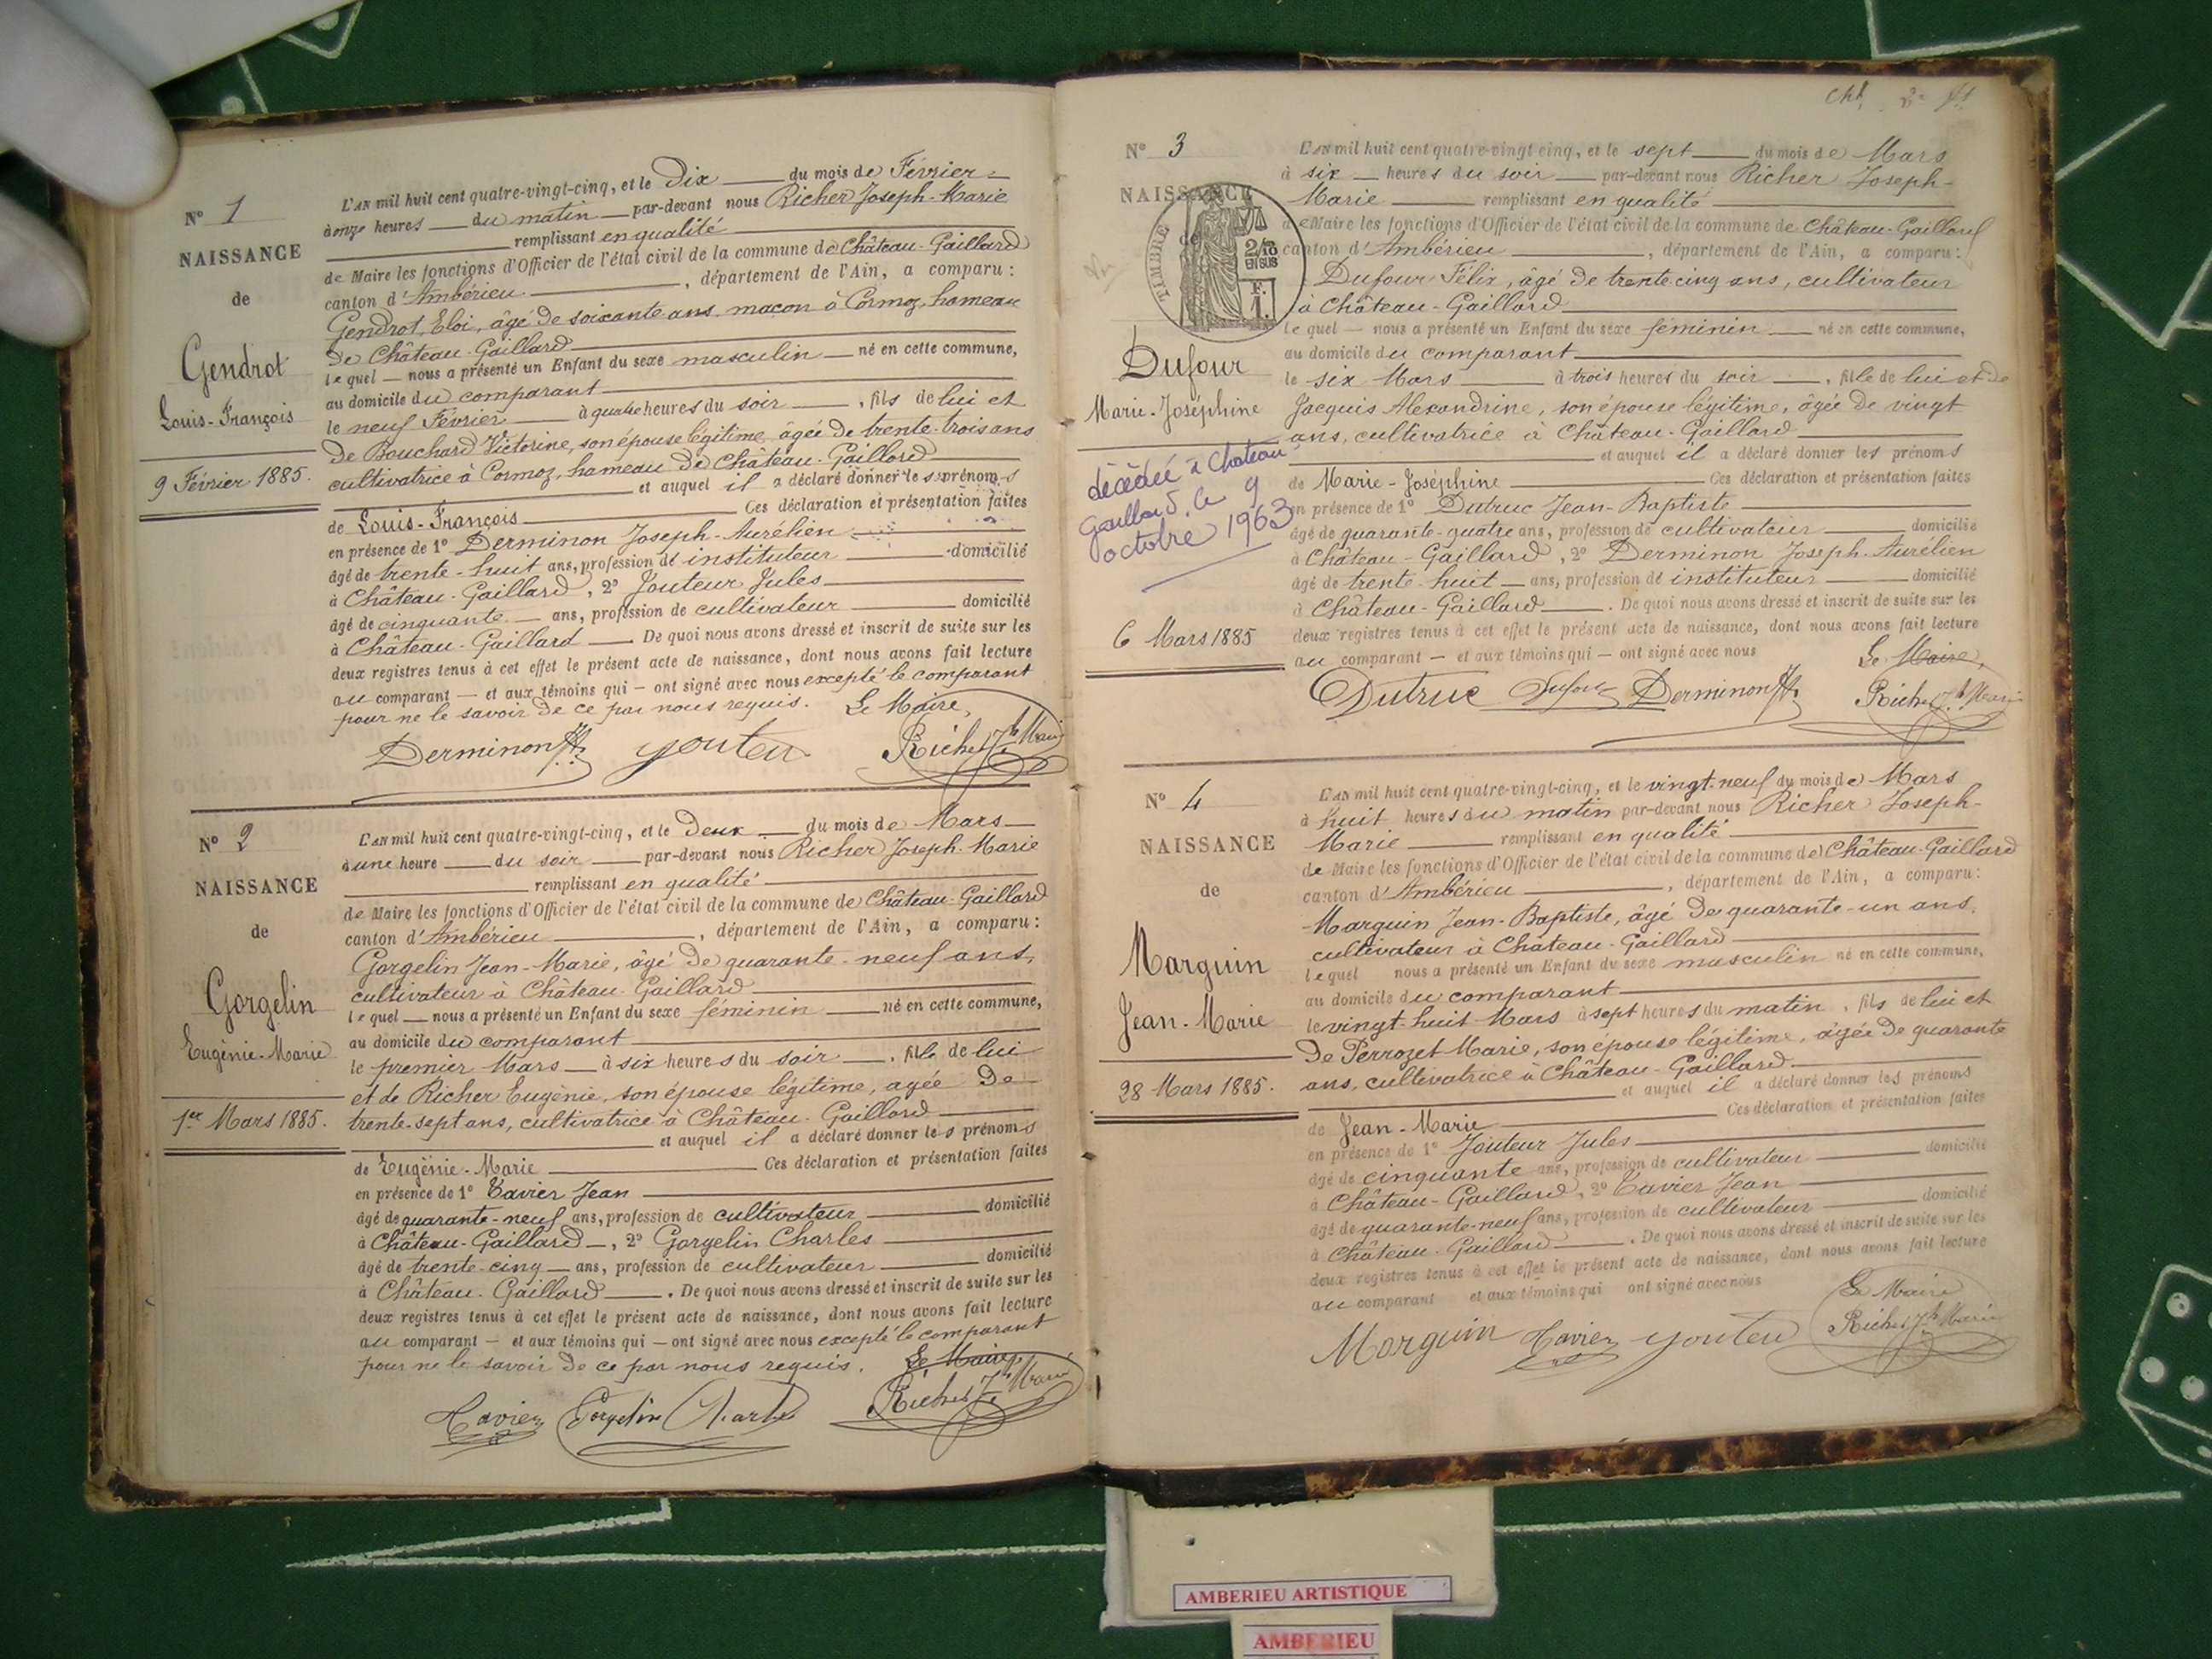 Nº 1
NAISSANCE
de
Gendrot
Louis-François
9 Février 1885.
L'AN mil huit cent quatre-vingt-cinq, et le Dix du mois de Février
à onze heures du matin par-devant nous Richer Joseph-Marie
remplissant en qualité
de Maire les fonctions d'Officier de l'état civil de la commune de Château-Gaillard
canton d'Ambérieu, département de l'Ain, a comparu :
Gendrot Eloi, âgé de soixante ans maçon à Cormoz, hameau
de Château-Gaillard
lequel — nous a présenté un Enfant du sexe masculin — né en cette commune,
au domicile du comparant
le neuf Février à quatre heures du soir, fils de lui et
de Bouchard Victorine, son épouse légitime, âgée de trente-trois ans
cultivatrice à Cormoz, hameau de Château-Gaillard
et auquel il a déclaré donner les prénoms
de Louis-François Ces déclaration et présentation faites
en présence de 1º Derminon Joseph-Aurélien
âgé de trente-huit ans, profession de instituteur domicilié
à Château-Gaillard, 2º Jouteur Jules
âgé de cinquante — ans, profession de cultivateur domicilié
à Château-Gaillard. De quoi nous avons dressé et inscrit de suite sur les
deux registres tenus à cet effet le présent acte de naissance, dont nous avons fait lecture
au comparant — et aux témoins qui — ont signé avec nous excepté le comparant
pour ne le savoir de ce par nous requis. Le Maire,
Derminon Jouteu Richer Jh Marie
Nº 2
NAISSANCE
de
Gorgelin
Eugénie-Marie
1er Mars 1885.
L'AN mil huit cent quatre-vingt-cinq, et le Deux du mois de Mars
à une heure du soir par-devant nous Richer Joseph-Marie
remplissant en qualité
de Maire les fonctions d'Officier de l'état civil de la commune de Château-Gaillard
canton d'Ambérieu, département de l'Ain, a comparu :
Gorgelin Jean-Marie, âgé de quarante-neuf ans,
cultivateur à Château-Gaillard
lequel — nous a présenté un Enfant du sexe féminin né en cette commune,
au domicile du comparant
le premier Mars à six heures du soir, fille de lui
et de Richer Eugénie, son épouse légitime, agée de
trente-sept ans, cultivatrice à Château-Gaillard
et auquel il a déclaré donner les prénoms
de Eugénie-Marie Ces déclaration et présentation faites
en présence de 1º Tavier Jean
âgé de quarante-neuf ans, profession de cultivateur domicilié
à Château-Gaillard, 2º Gorgelin Charles
âgé de trente-cinq — ans, profession de cultivateur domicilié
à Château-Gaillard. De quoi nous avons dressé et inscrit de suite sur les
deux registres tenus à cet effet le présent acte de naissance, dont nous avons fait lecture
au comparant — et aux témoins qui — ont signé avec nous excepté le comparant
pour ne le savoir de ce par nous requis. Le Maire,
Tavier Gorgelin Charles Richer Jh Marie
Nº 3
NAISSANCE
de
TIMBRE
2/10
EN SUS
F.
1.
Dufour
Marie-Joséphine
décédée à Chateau
Gaillard, le 9
octobre 1963
6 Mars 1885
L'AN mil huit cent quatre-vingt cinq, et le sept du mois de Mars
à six — heures du soir — par-devant nous Richer Joseph-
Marie remplissant en qualité
de Maire les fonctions d'Officier de l'état civil de la commune de Château-Gaillard
canton d'Ambérieu, département de l'Ain, a comparu :
Dufour Félix, âgé de trente cinq ans, cultivateur
à Château-Gaillard
lequel — nous a présenté un Enfant du sexe féminin né en cette commune,
au domicile du comparant
le six Mars à trois heures du soir, fille de lui et de
Jacquis Alexandrine, son épouse légitime, âgée de vingt
ans, cultivatrice à Château-Gaillard
et auquel il a déclaré donner les prénoms
de Marie-Joséphine Ces déclaration et présentation faites
en présence de 1º Dutruc Jean-Baptiste
âgé de quarante-quatre ans, profession de cultivateur domicilié
à Château-Gaillard, 2º Derminon Joseph-Aurélien
âgé de trente-huit — ans, profession de instituteur domicilié
à Château-Gaillard. De quoi nous avons dressé et inscrit de suite sur les
deux registres tenus à cet effet le présent acte de naissance, dont nous avons fait lecture
au comparant — et aux témoins qui — ont signé avec nous Le Maire,
Dutruc Dufour Derminon Richer Jh Marie
Nº 4
NAISSANCE
de
Marguin
Jean-Marie
28 Mars 1885.
L'AN mil huit cent quatre-vingt-cinq, et le vingt-neuf du mois de Mars
à huit heures du matin par-devant nous Richer Joseph-
Marie remplissant en qualité
de Maire les fonctions d'Officier de l'état civil de la commune de Château-Gaillard
canton d'Ambérieu, département de l'Ain, a comparu :
Marguin Jean-Baptiste, âgé de quarante-un ans,
cultivateur à Château-Gaillard
lequel nous a présenté un Enfant du sexe masculin né en cette commune,
au domicile du comparant
le vingt-huit Mars à sept heures du matin, fils de lui et
de Perrozet Marie, son épouse légitime, âgée de quarante
ans, cultivatrice à Château-Gaillard
et auquel il a déclaré donner les prénoms
de Jean-Marie Ces déclaration et présentation faites
en présence de 1º Jouteur Jules
âgé de cinquante ans, profession de cultivateur domicilié
à Château-Gaillard, 2º Tavier Jean
âgé de quarante-neuf ans, profession de cultivateur domicilié
à Château-Gaillard. De quoi nous avons dressé et inscrit de suite sur les
deux registres tenus à cet effet le présent acte de naissance, dont nous avons fait lecture
au comparant et aux témoins qui ont signé avec nous Le Maire
Marguin Tavier Jouteu Richer Jh Marie
AMBERIEU ARTISTIQUE
AMBERIEU